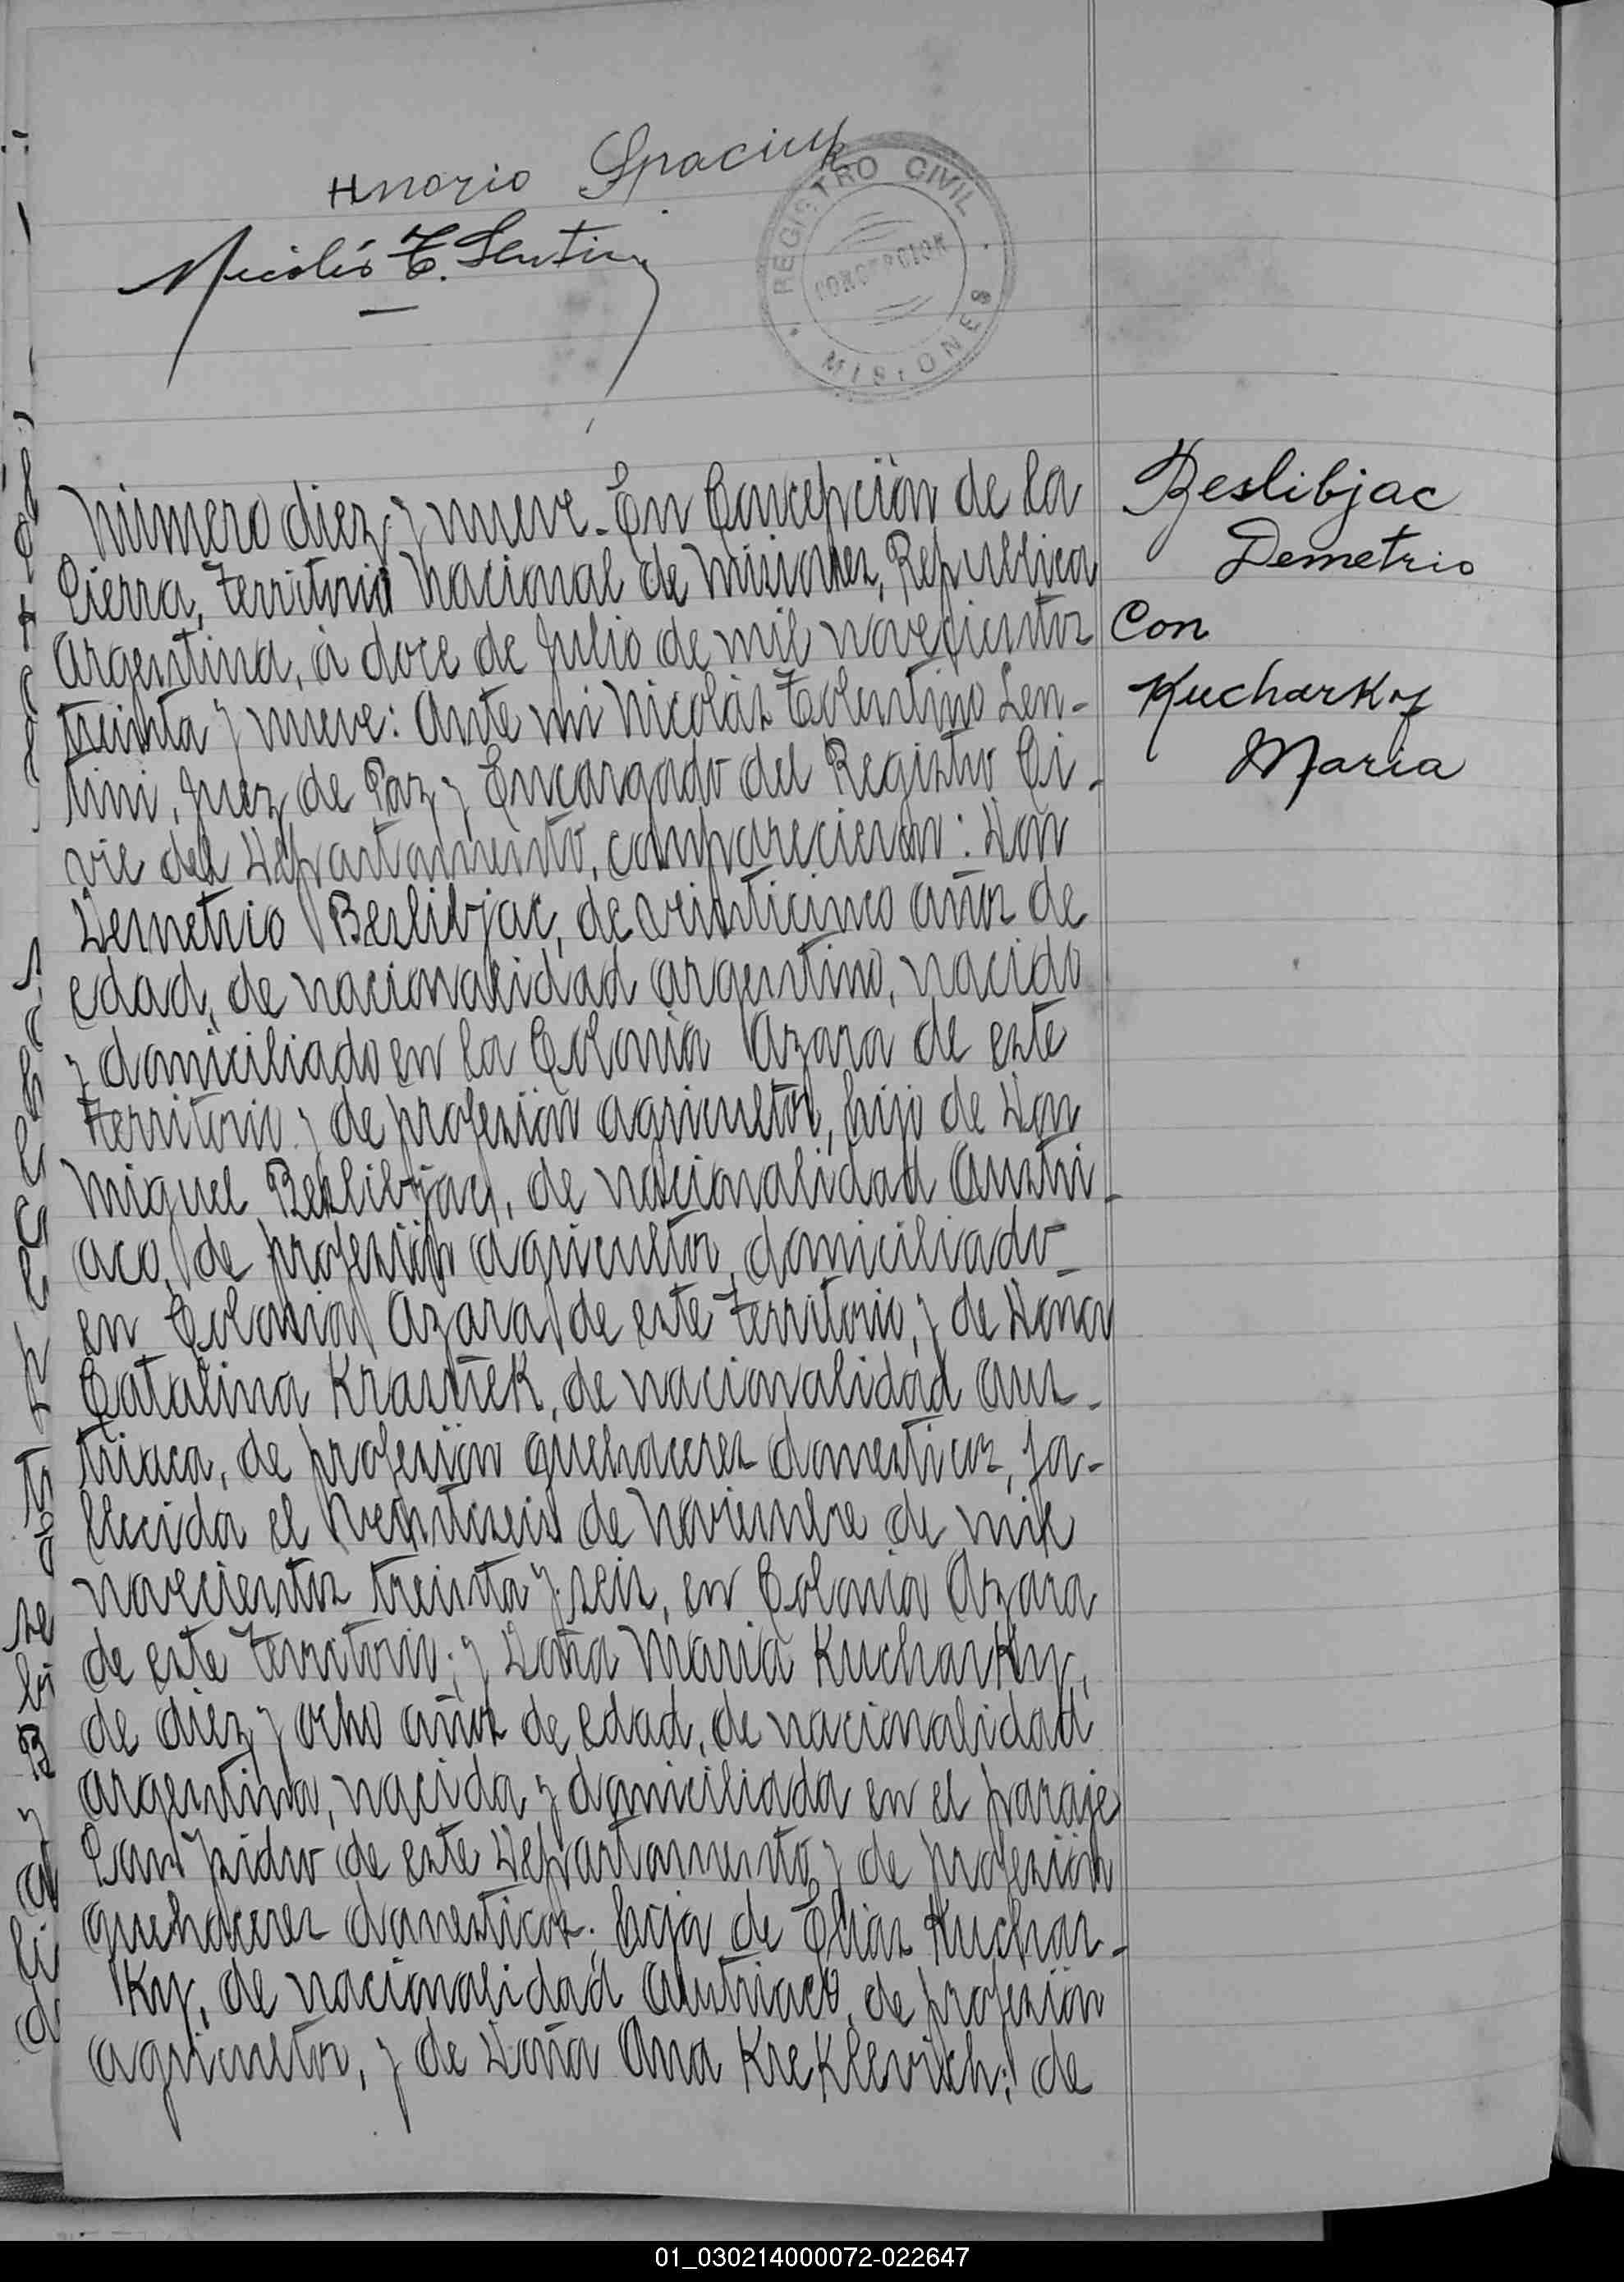 Spaciuk
Nicolás T. Lentini
REGISTRO CIVIL
CONCEPCION
MISIONES
Número diez y nueve. En Concepción de la
Sierra, Territorio Nacional de Misiones, Republica
Argentina, á doce de Julio de mil novecientos
treinta y nueve: Ante mi Nicolás Tolentino Len-
tini, Juez de Paz y Encargado del Registro Ci-
vil del Departamento, comparecieron: Don
Demetrio Beslibjac, de veinticinco años de
edad, de nacionalidad argentino, nacido
y domiciliado en la Colonia Azara de este
Territorio y de profesión agricultor, hijo de Don
Miguel Beslibjac, de nacionalidad Austri-
aco, de profesión agricultor, domiciliado
en Colonia Azara de este Territorio, y de Dona
Catalina Krasñek, de nacionalidad aus-
triaca, de profesión quehaceres domesticos, fa-
llecida el veintiseis de noviembre de mil
novecientos treinta y seis, en Colonia Azara
de este Territorio; y Doña Maria Kucharky,
de diez y ocho años de edad, de nacionalidad
argentina, nacida y domiciliada en el paraje
San Isidro de este Departamento y de profesión
quehaceres domesticos, hija de Elias Kuchar-
ky, de nacionalidad Austriaco, de profesión
agricultor, y de Doña Ana Kreklevich, de
Beslibjac
Demetrio
Con
Kucharky
Maria
01_030214000072-022647